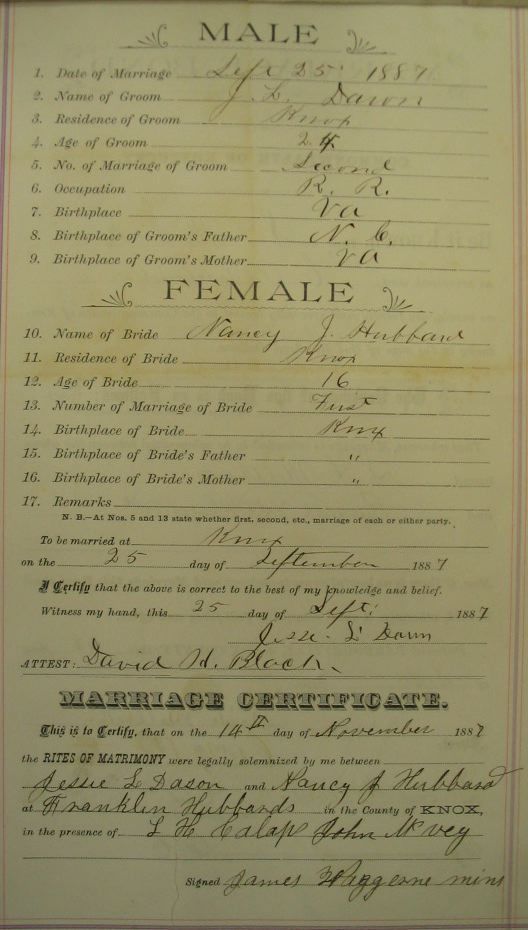 MALE
1. Date of Marriage Sept 25 1887
2. Name of Groom J. L. Dawn
3. Residence of Groom Knox
4. Age of Groom 24
5. No. of Marriage of Groom Second
6. Occupation R. R.
7. Birthplace Va
8. Birthplace of Groom's Father N. C.
9. Birthplace of Groom's Mother Va
FEMALE
10. Name of Bride Nancy J. Hubbard
11. Residence of Bride Knox
12. Age of Bride 16
13. Number of Marriage of Bride First
14. Birthplace of Bride Knox
15. Birthplace of Bride's Father "
16. Birthplace of Bride's Mother "
17. Remarks
N. B.—At Nos. 5 and 13 state whether first, second, etc., marriage of each or either party.
To be married at Knox
on the 25 day of September 1887
I Certify that the above is correct to the best of my knowledge and belief.
Witness my hand, this 25 day of Sept. 1887
Jesse L Dawn
ATTEST: David H. Black
MARRIAGE CERTIFICATE.
This is to Certify, that on the 14 day of November 1887
the RITES OF MATRIMONY were legally solemnized by me between
Jessie L Dason and Nancy J Hubbard
at Franklin Hubbards in the County of KNOX,
in the presence of L H John McVey
Signed James mins